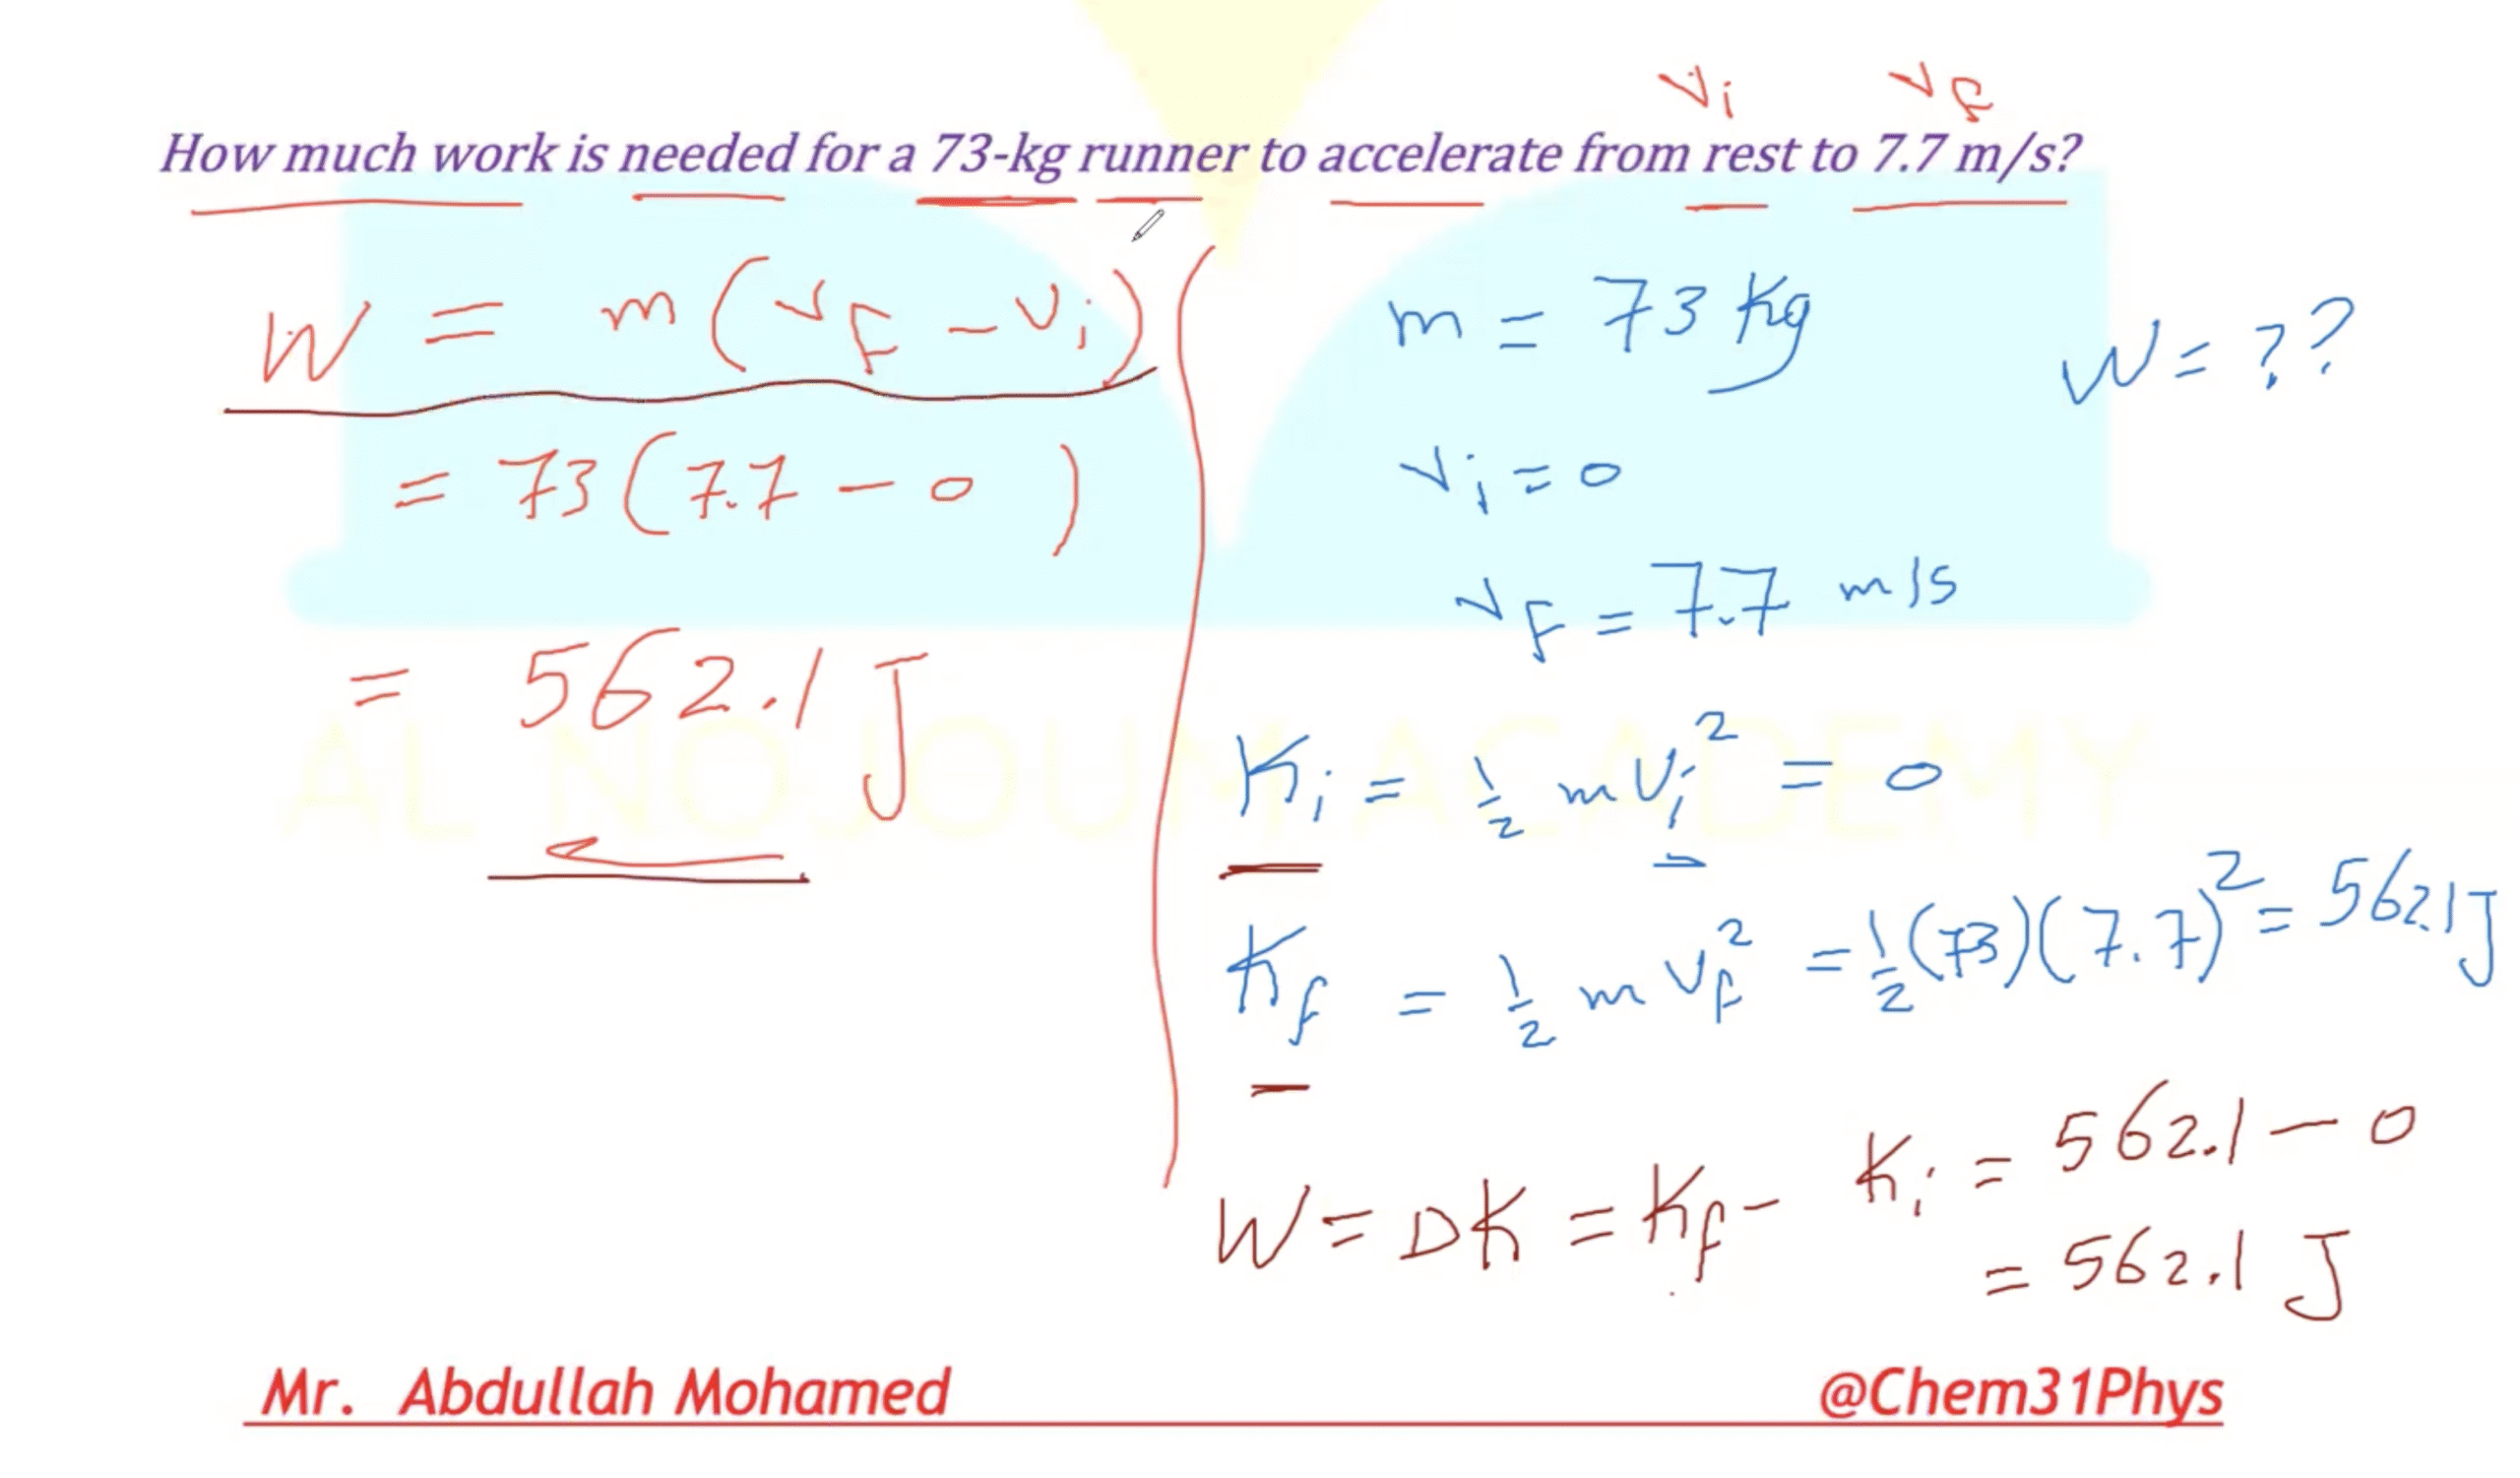 vᵢ v_F
How much work is needed for a 73-kg runner to accelerate from rest to 7.7 m/s?
W = m(v_F - vᵢ)
= 73(7.7 - 0)
= 562.1 J
m = 73 Kg
W = ??
vᵢ = 0
v_F = 7.7 m/s
Kᵢ = 1/2 m vᵢ² = 0
K_f = 1/2 m v_F² = 1/2 (73)(7.7)² = 562.1 J
W = DK = K_f - Kᵢ = 562.1 - 0
= 562.1 J
AL NOJOUM ACADEMY
Mr. Abdullah Mohamed
@Chem31Phys